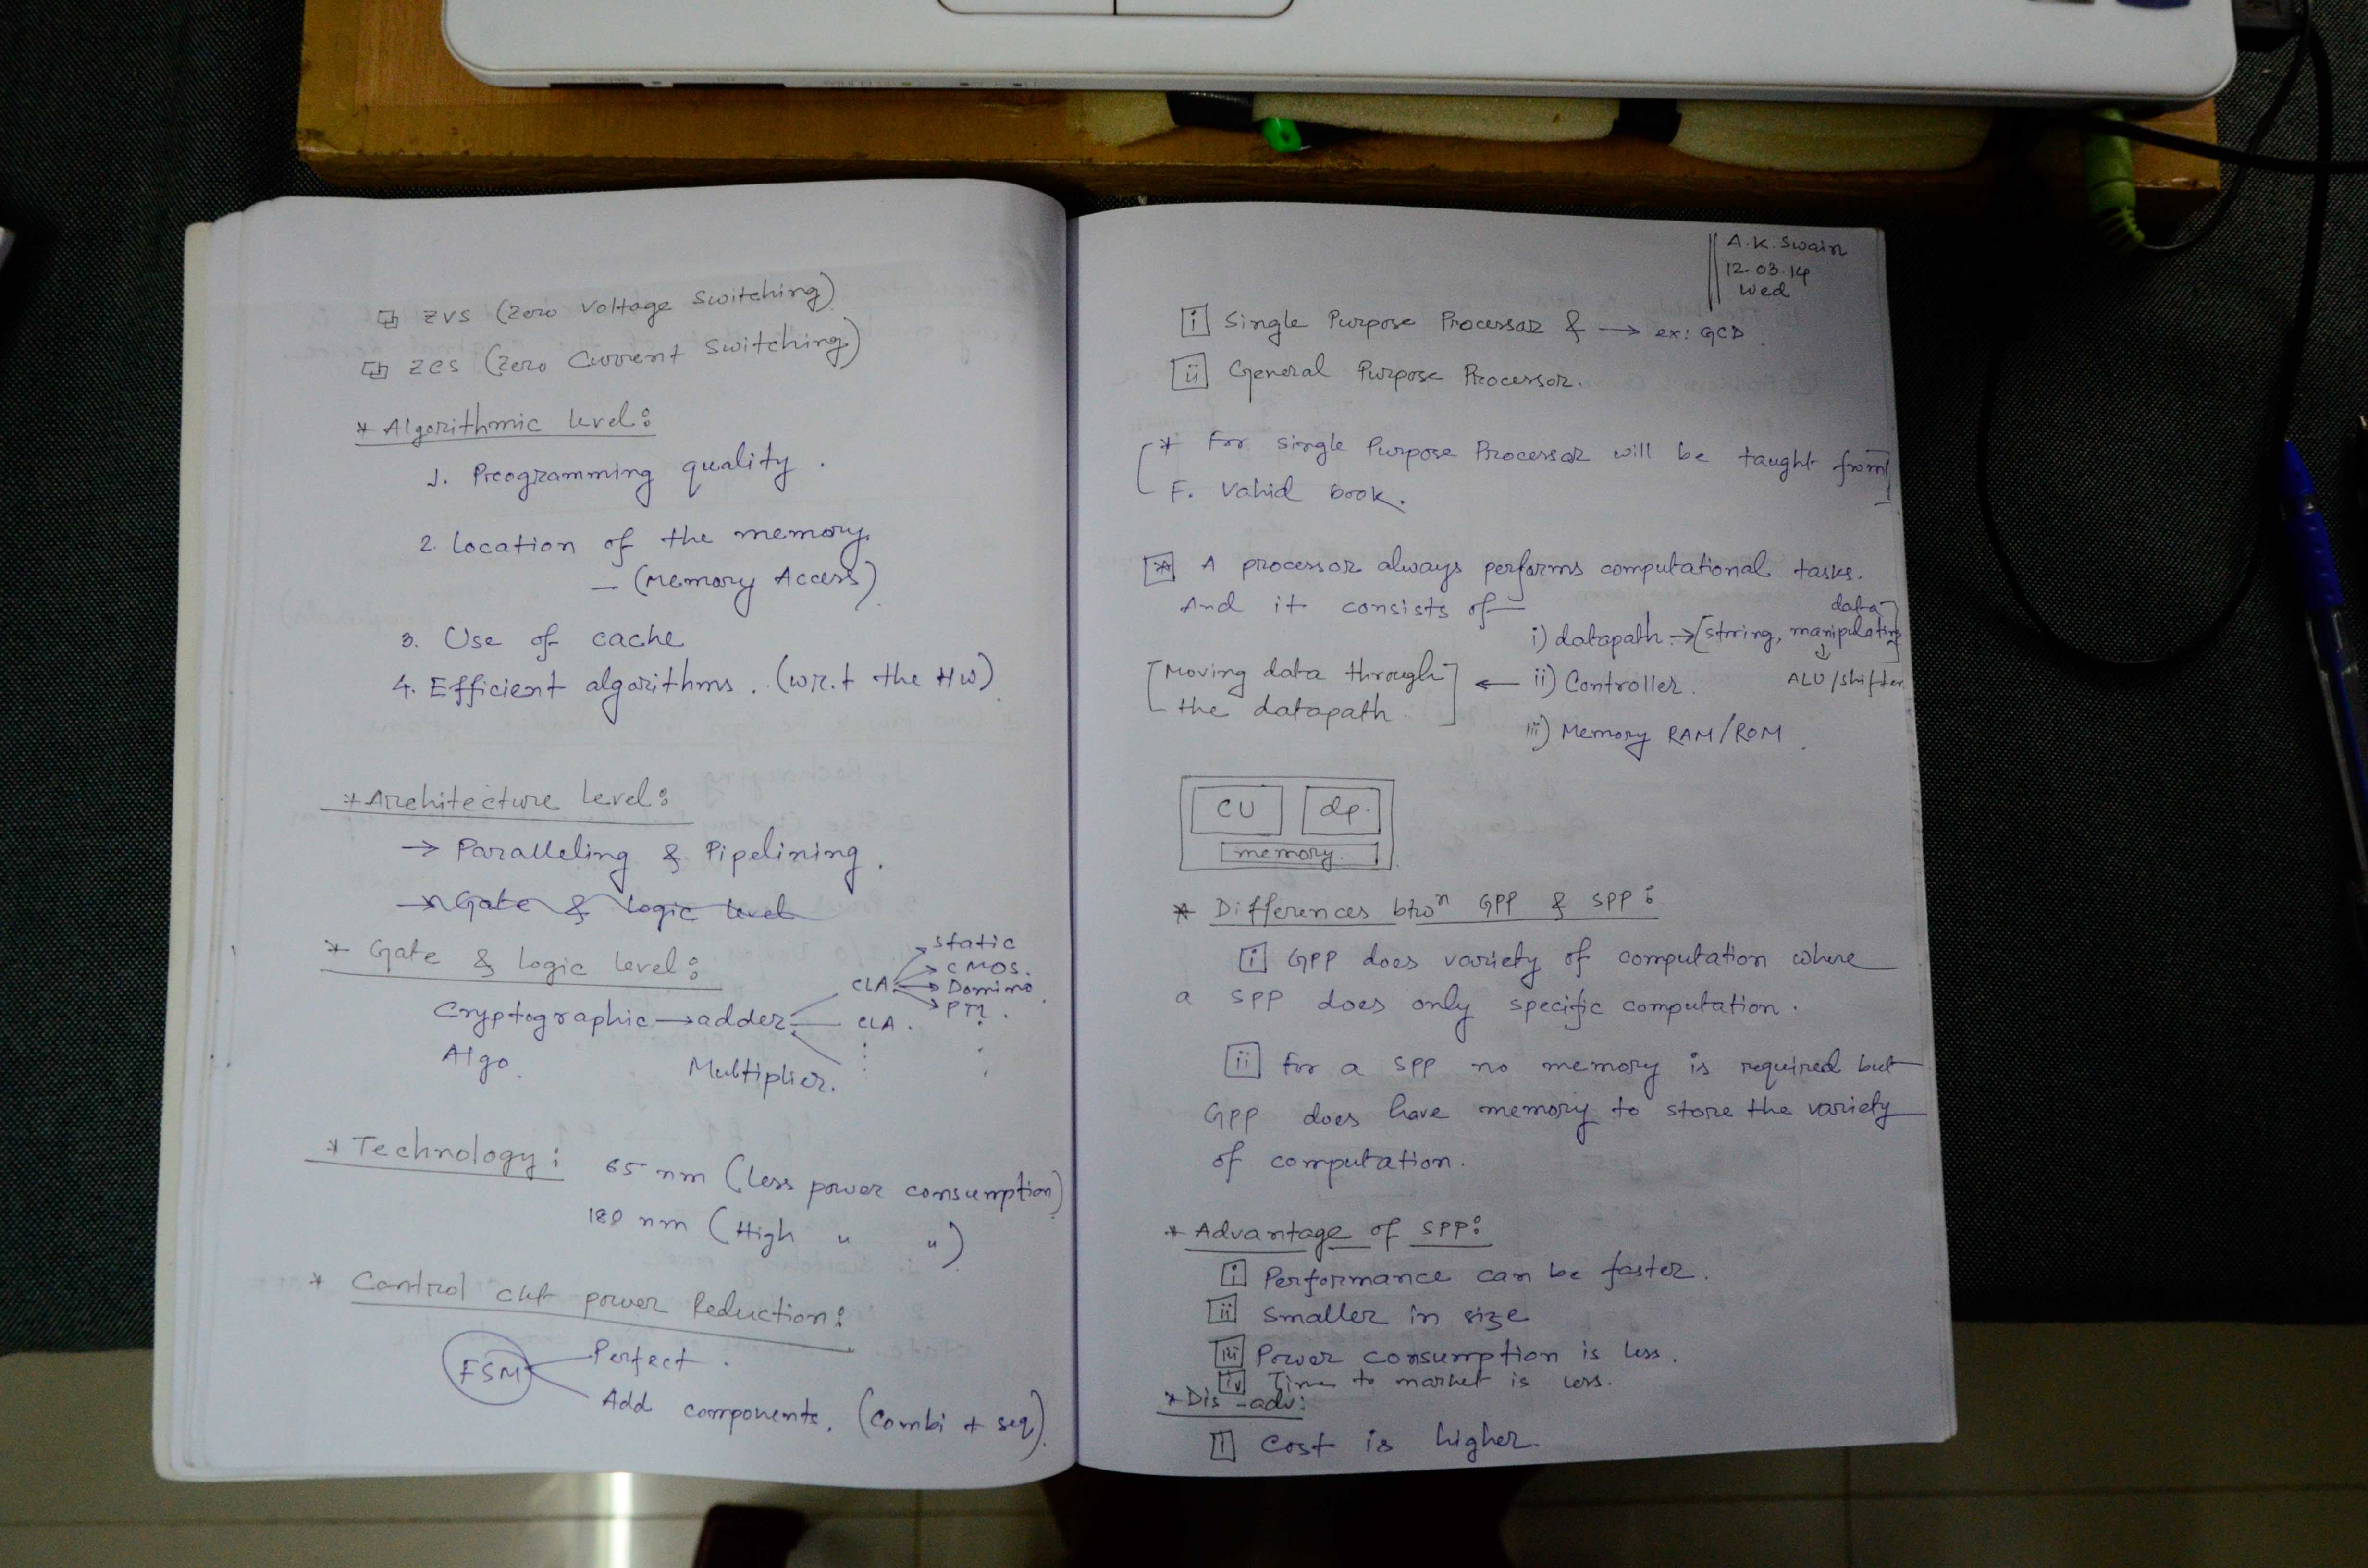 ZVS (Zero Voltage Switching)
ZCS (Zero Current Switching)
* Algorithmic level:
1. Programming quality.
2. Location of the memory.
— (Memory Access)
3. Use of cache
4. Efficient algorithms. (w.r.t the HW)
* Architecture level:
→ Paralleling & Pipelining.
→ Gate & Logic level
* Gate & Logic level:
Cryptographic → adder
Algo
Multiplier.
CLA
CLA.
static
CMOS.
Domino
PTL.
* Technology:
65 nm (Less power consumption)
180 nm (High " ")
* Control ckt power Reduction:
FSM
Perfect.
Add components. (Combi + seq)
A.K. Swain
12.03.14
Wed
i Single Purpose Processor & → ex: GCD
ii General Purpose Processor.
* For Single Purpose Processor will be taught from
F. Vahid book.
* A processor always performs computational tasks.
And it consists of—
i) datapath → [string, manipulating data]
↓
ALU/shifter
[Moving data through ← ii) Controller.
the datapath.]
iii) Memory RAM/ROM
CU dp.
memory.
* Differences btwn GPP & SPP:
i GPP does variety of computation where
a SPP does only specific computation.
ii For a SPP no memory is required but
GPP does have memory to store the variety
of computation.
* Advantage of SPP:
i Performance can be faster.
ii Smaller in size
iii Power consumption is less.
iv Time to market is less.
* Dis-adv:
i Cost is higher.